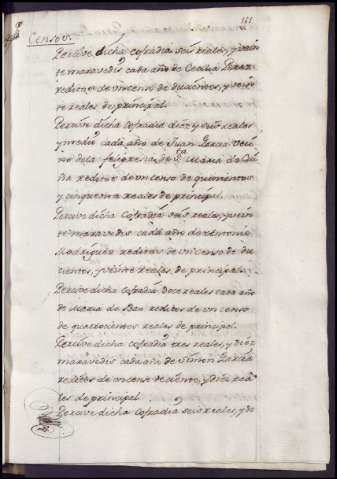 161.
Censos.
Percive dicha cofradia seis reales, y vein
te maravedis cada año de Cecilia Perez
reditos de un censo de duzientos, y vein
te reales de principal.
Percive dicha cofradia diez y seis reales,
y medio cada año de Juan Garza veci
no de la feligresia de Sta Maria de
reditos de un censo de quinientos
y cinquenta reales de principal.
Percive dicha cofradia seis reales, y vein
te maravedis cada año de Antonio
Rodriguez reditos de un censo de du
cientos, y veinte reales, de principal.
Percive dicha cofradia doce reales cada año
de Maria do Bao reditos de un censo
de quatrocientos reales de principal.
Percive dicha cofradia tres reales, y diez
maravedis cada año de Simon Garza
reditos de un censo de ciento, y diez rea
les de principal.
Percive dicha cofradia seis reales, y de